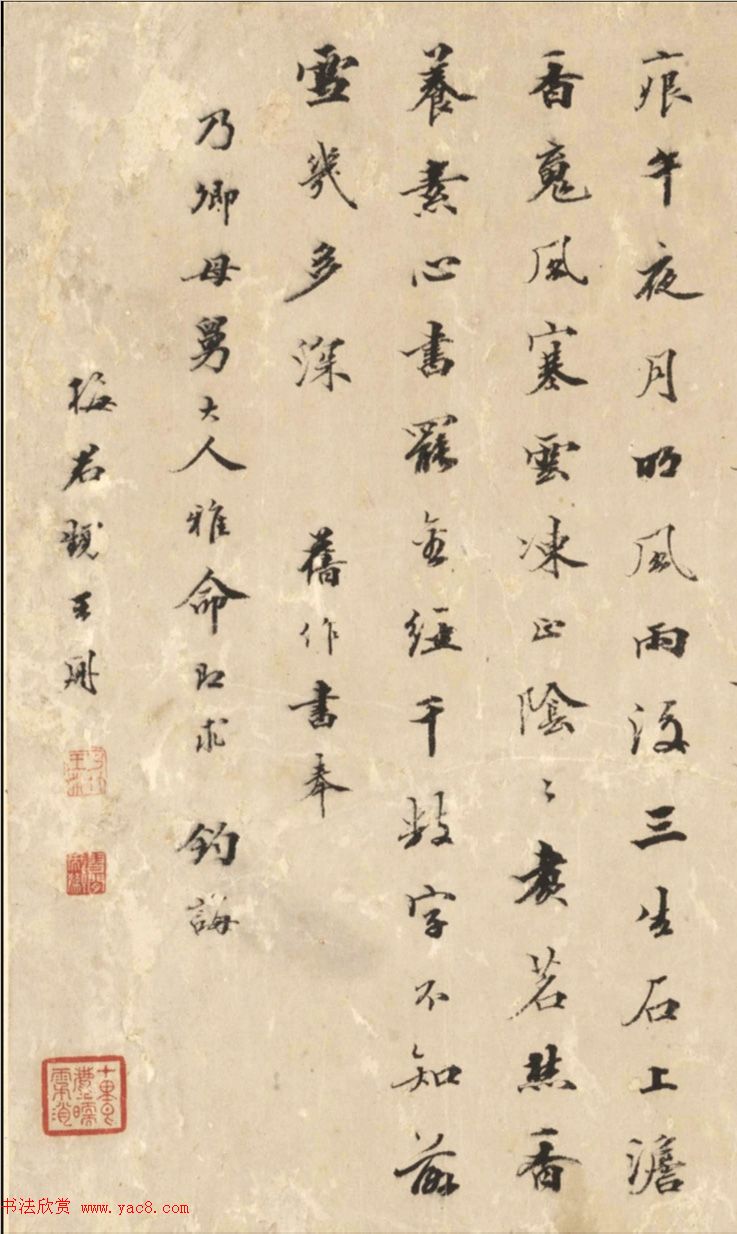 痕午夜月明風雨後三生石上澹
香魂風寒雲凍正陰〻煮茗焚香
養素心書罷金經千數字不知前
雪幾多深 舊作書奉
乃卿母舅大人雅命即求 鈞誨
梅若甥王
书法欣赏 www.yac8.com